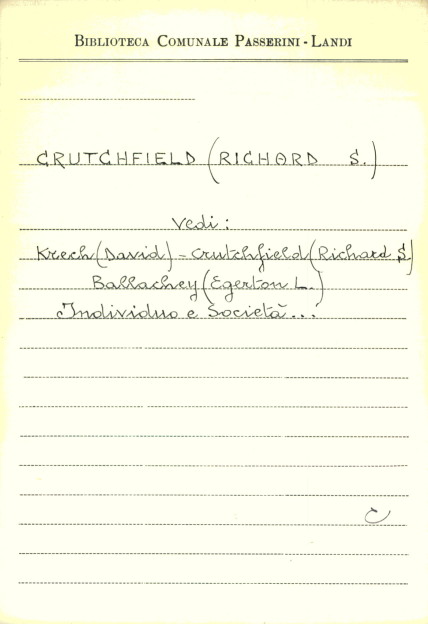 BIBLIOTECA COMUNALE PASSERINI - LANDI
CRUTCHFIELD (RICHARD S.)
Vedi:
Krech (David) - Crutchfield (Richard S.)
Ballachey (Egerton L.)
Individuo e Società...
C